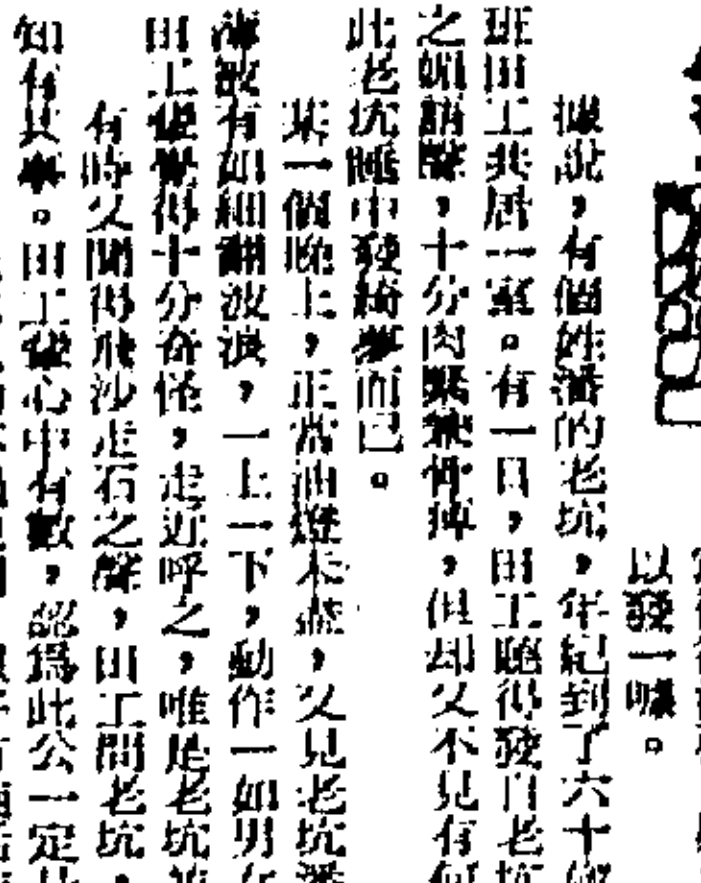 以發一噱。
據說，有個姓潘的老坑，年紀到了六十
班田工共居一室。有一日，田工聽得發自老坑
之媚語聲，十分肉緊兼骨痺，但却又不見有何
此老坑睡中發綺夢而已。
某一個晚上，正當油燈未盡，又見老坑潘
薄被有如細翻波浪，一上一下，動作一如男女
田工便覺得十分奇怪，走近呼之，唯是老坑並
有時又聞得飛沙走石之聲，田工問老坑，
知有其事。田工便心中有數，認爲此公一定